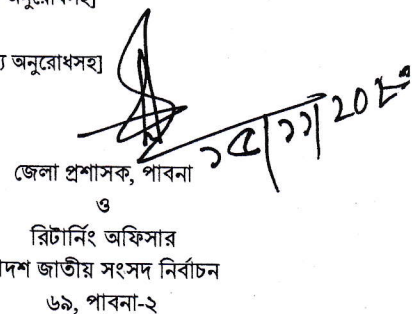 অনুরোধসহ]
অনুরোধসহ]
১৫/১১/20
জেলা প্রশাসক, পাবনা
ও
রিটার্নিং অফিসার
জাতীয় সংসদ নির্বাচন
৬৯, পাবনা-২